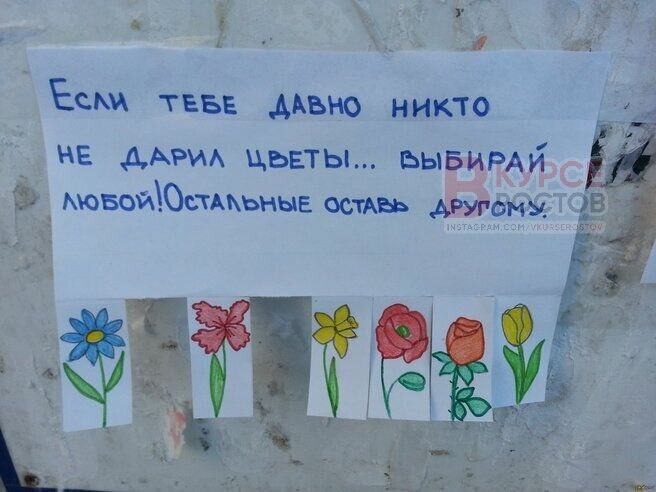 Если тебе давно никто
не дарил цветы... выбирай
любой! Остальные оставь другому.
В КУРСЕ
РОСТОВ
INSTAGRAM.COM/VKURSEROSTOV